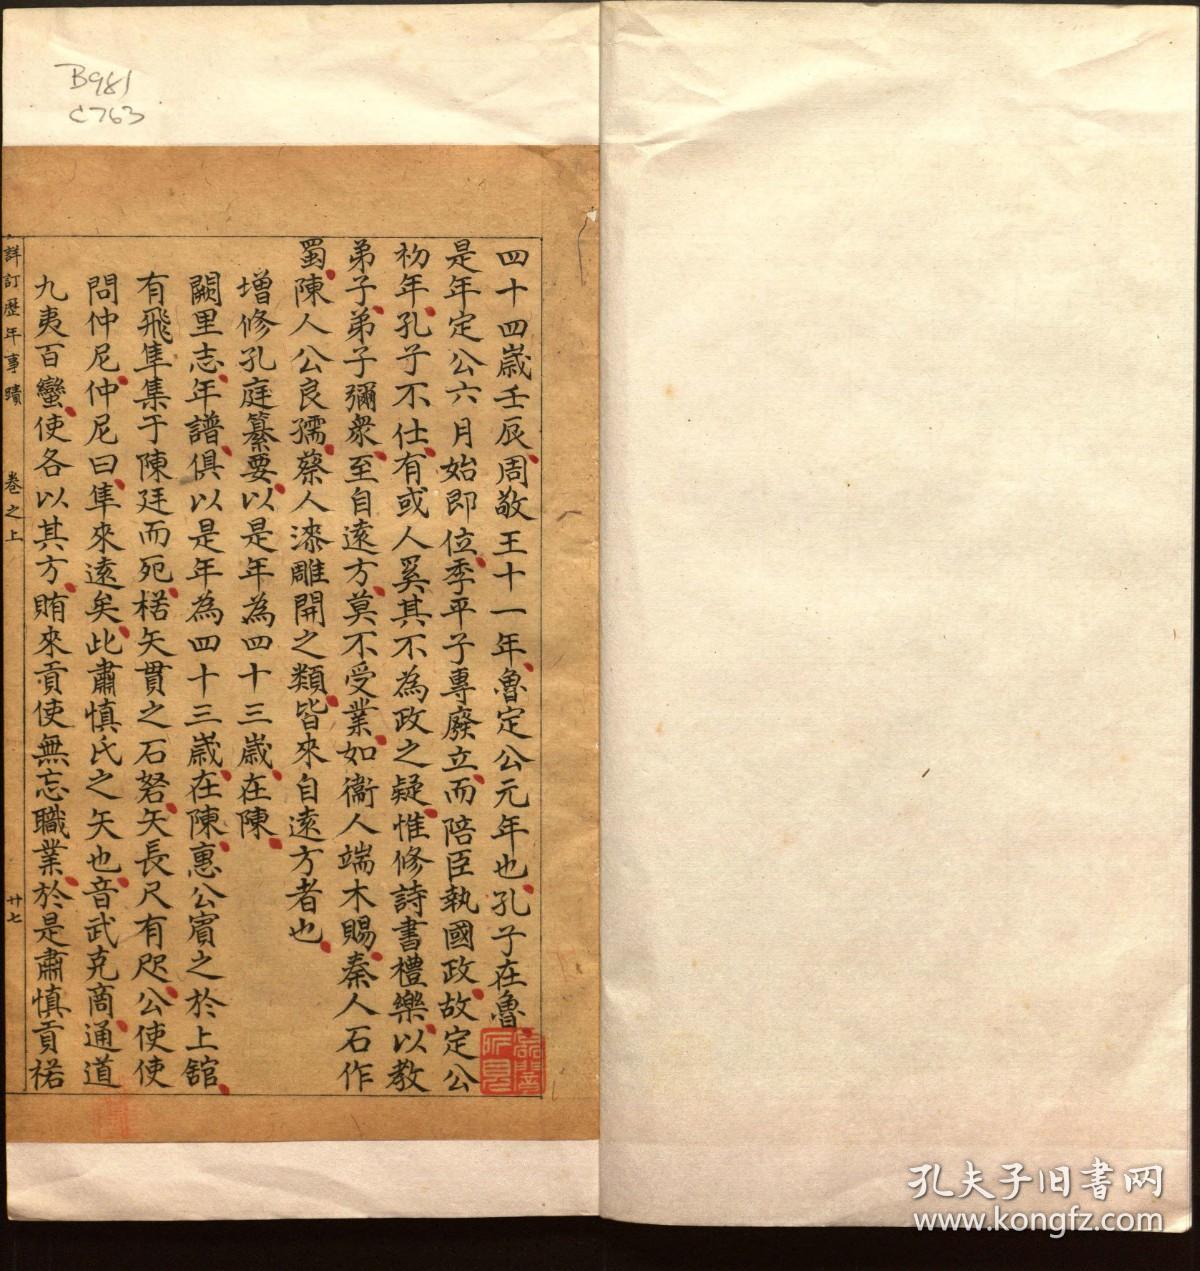 B981
C763
四十四歲壬辰周敬王十一年魯定公元年也孔子在魯
是年定公六月始即位季平子專廢立而陪臣執國政故定公
初年孔子不仕有或人奚其不為政之疑惟修詩書禮樂以教
弟子弟子彌衆至自遠方莫不受業如衞人端木賜秦人石作
蜀陳人公良孺蔡人漆雕開之類皆來自遠方者也
增修孔庭纂要以是年為四十三歲在陳
闕里志年譜俱以是年為四十三歲在陳惠公賓之於上舘
有飛隼集于陳廷而死楛矢貫之石砮矢長尺有咫公使使
問仲尼仲尼曰隼來遠矣此肅慎氏之矢也昔武克商通道
九夷百蠻使各以其方賄來貢使無忘職業於是肅慎貢楛
詳訂歷年事蹟 卷之上 廿七
孔夫子旧书网
www.kongfz.com